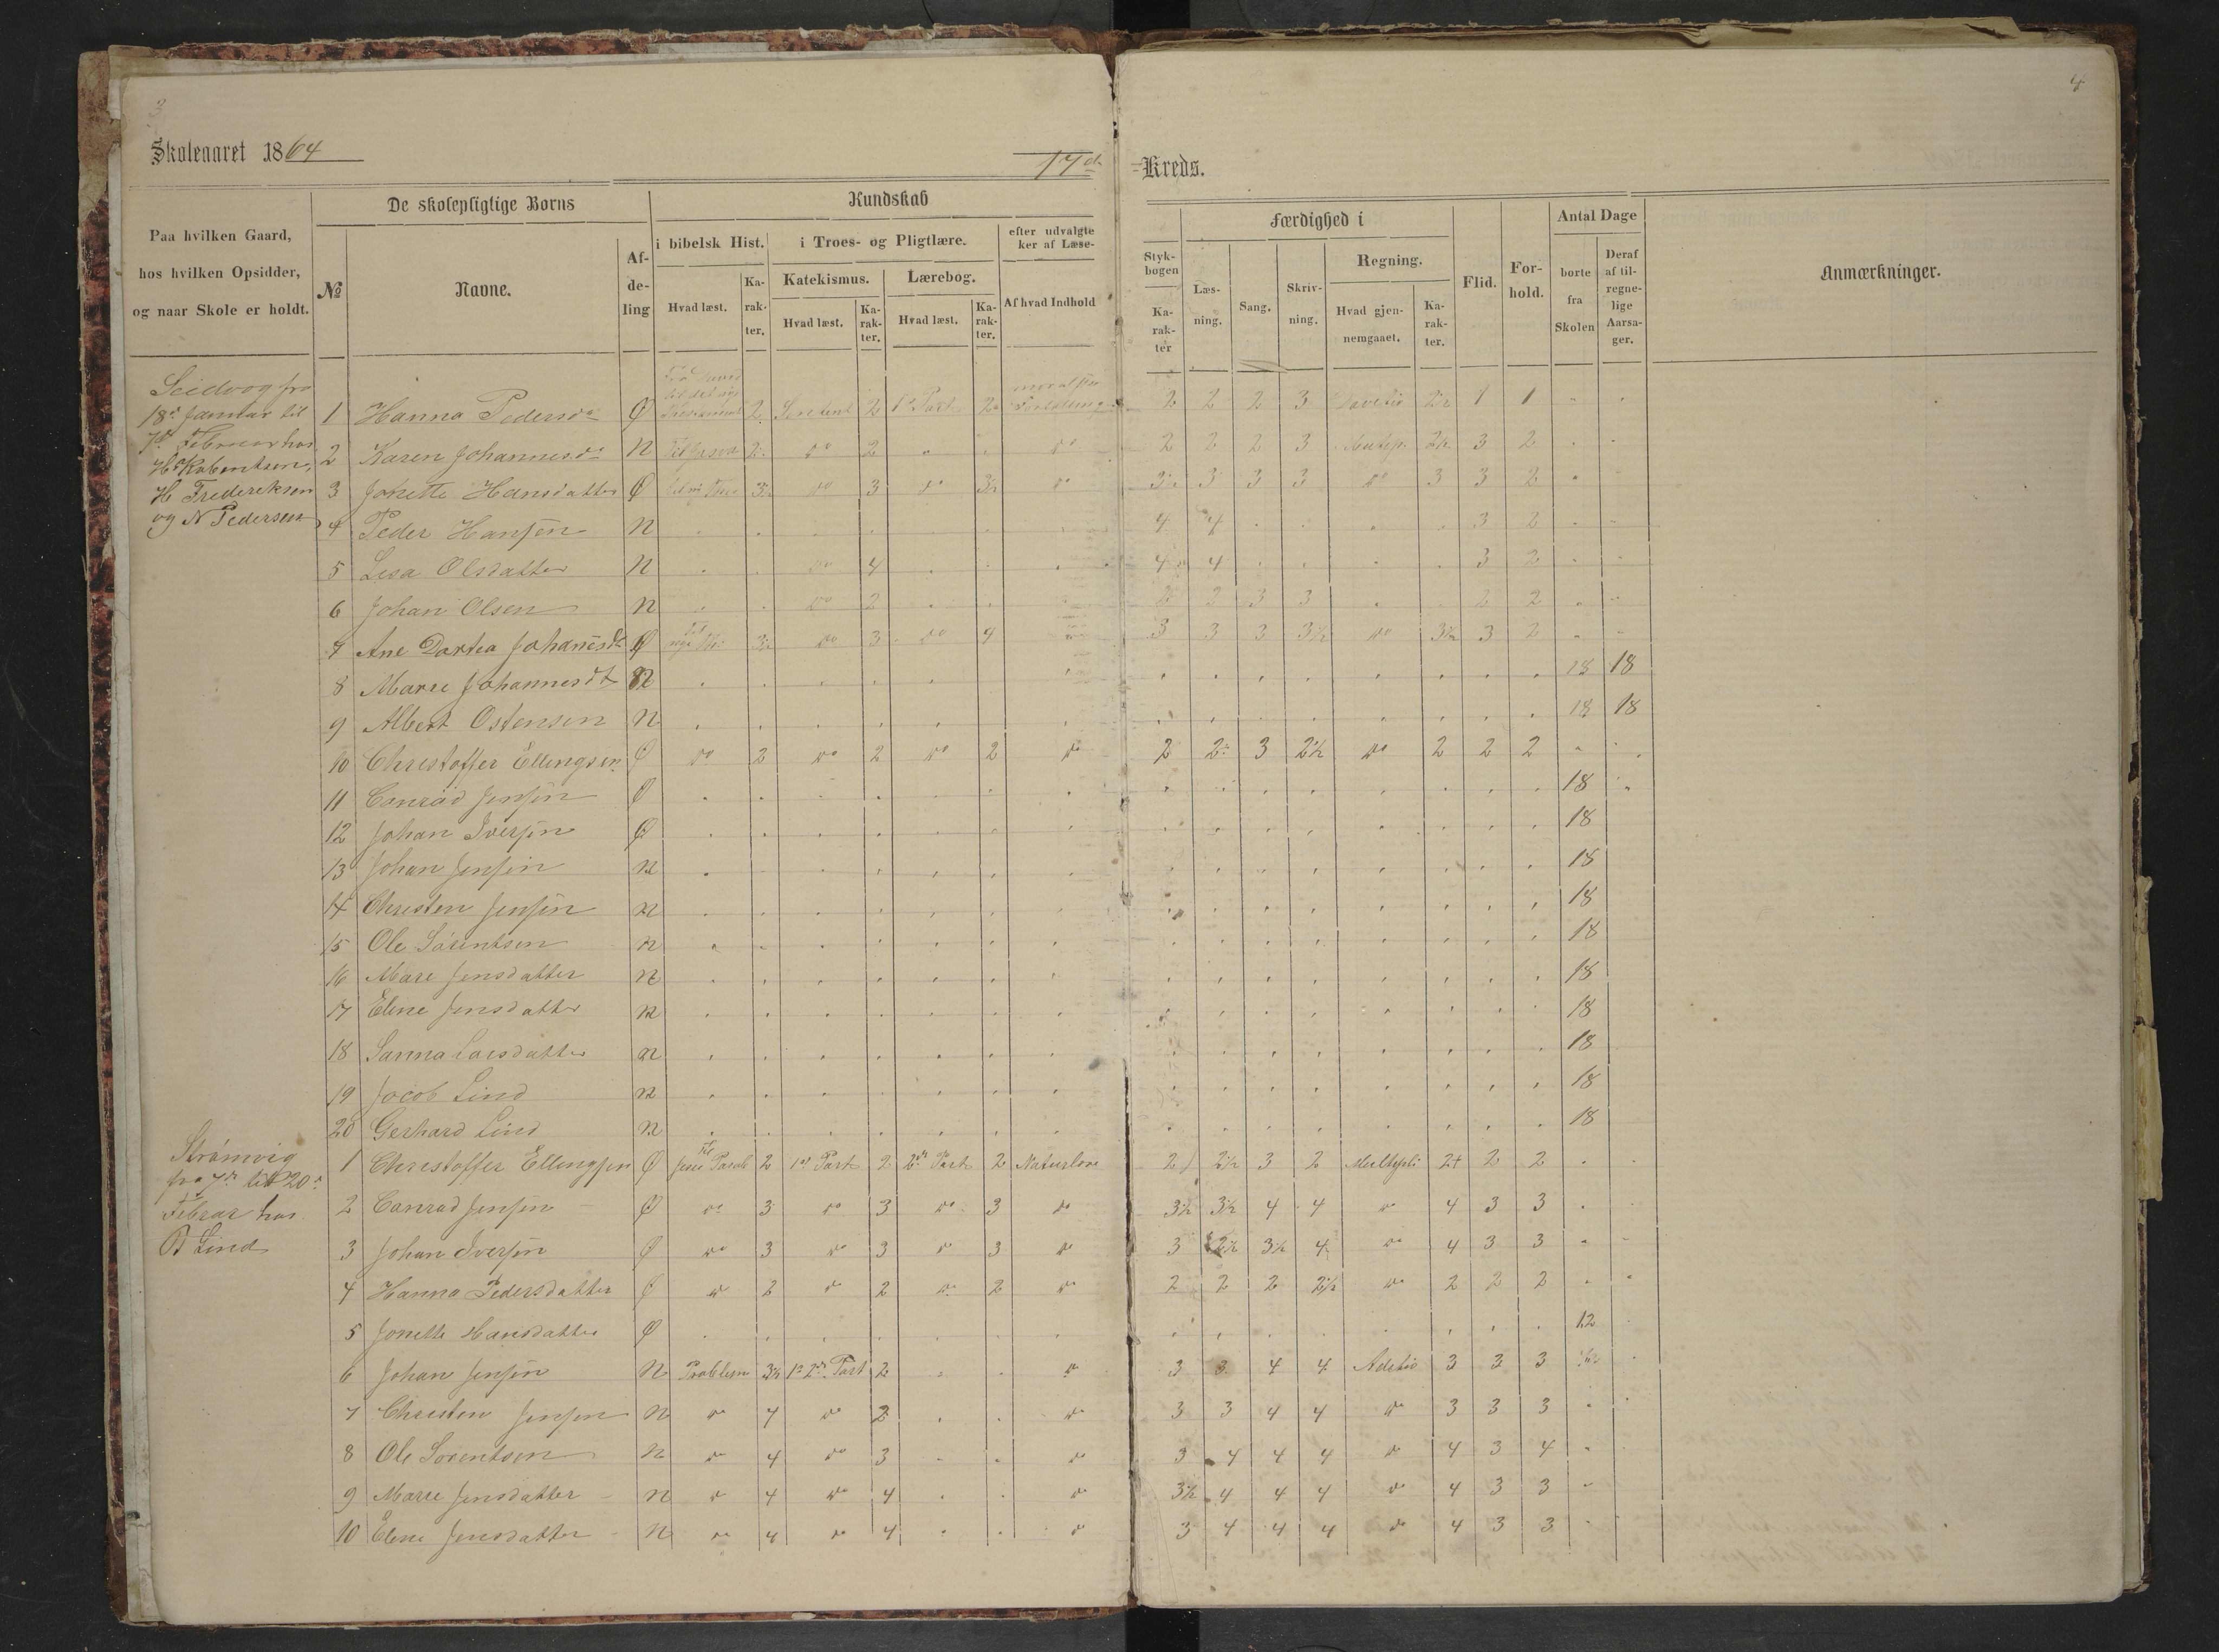 3
4
Skoleaaret 1864
17de Kreds.
De skolepligtige Børns
Kundskab
Færdighed i
Antal Dage
Paa hvilken Gaard,
hos hvilken Opsidder,
og naar Skole er holdt.
№
Navne.
Af-
de-
ling
i bibelsk Hist.
i Troes- og Pligtlære.
efter udvalgte
ker af Læse-
Styk-
bogen
Hvad læst.
Ka-
rak-
ter.
Katekismus.
Lærebog.
Hvad læst.
Ka-
rak-
ter.
Hvad læst.
Ka-
rak-
ter.
Af hvad Indhold
Ka-
rak-
ter
Læs-
ning.
Sang.
Skriv-
ning.
Regning.
Hvad gjen-
nemgaaet.
Ka-
rak-
ter.
Flid.
For-
hold.
borte
fra
Skolen
Deraf
af til-
regne-
lige
Aarsa-
ger.
Anmærkninger.
Seidvog fra
18de Januar til
7de Februar hos
H Frederiksen
og N Pedersen
1 Hanna Pedersdr Ø 2 2 1ste Part 2 2 2 2 3 1 1
2 Karen Johannesdr N 2 do 2 do 2 2 2 3 Multip. 2½ 3 2
3 Jonette Hansdatter Ø do 3 do 3½ do 3½ 3 3 3 do 3 3 2
4 Peder Hansen N 4 4 3 2
5 Lisa Olsdatter N do 4 4 4 3 2
6 Johan Olsen N do 2 3 3 2 2
7 Ane Dortea Johannesdt Ø do 3 do 3 3 3 3½ do 3½ 3 2
8 Marie Johannesdt N 18 18
9 Albert Ostensen N 18 18
10 Christoffer Ellingsen Ø do 2 do 2 do 2 do 2 2 3 2½ do 2 2 2
11 Conrad Jensen Ø 18
12 Johan Iversen Ø 18
13 Johan Jensen N 18
14 Christen Jensen N 18
15 Ole Sørentsen N 18
16 Mare Jensdatter N 18
17 Elene Jensdatter N 18
18 Sanna Larsdatter N 18
19 Jacob Lind N 18
20 Gerhard Lind N 18
Strømvig
fra 7de til 20de
Februar hos
O Lind
1 Christoffer Ellingsen Ø 2 1ste Part 2 2den Part 2 Naturlære 2 2½ 3 2 Multipli 2+ 2 2
2 Conrad Jensen Ø do 3 do 3 do 3 do 3½ 3½ 4 4 do 4 3 3
3 Johan Iversen Ø do 3 do 3 do 3 do 3 2½ 3½ 4 do 4 3 3
4 Hanna Pedersdatter Ø do 2 do 2 do 2 do 2 2 2 2½ do 2 2 2
5 Jonette Hansdatter Ø 12
6 Johan Jensen N 3½ 1ste 2den Part 2 do 3 3 4 4 3 3 3
7 Christen Jensen N do 4 do 2 do 3 3 4 4 do 3 3 3
8 Ole Sorentsen N do 4 do 3 do 3 4 4 4 do 4 3 4
9 Marie Jensdatter N do 4 do 4 do 3½ 4 4 4 do 4 3 3
10 Elene Jensdatter N do 4 do 4 do 3 4 4 4 do 4 3 3